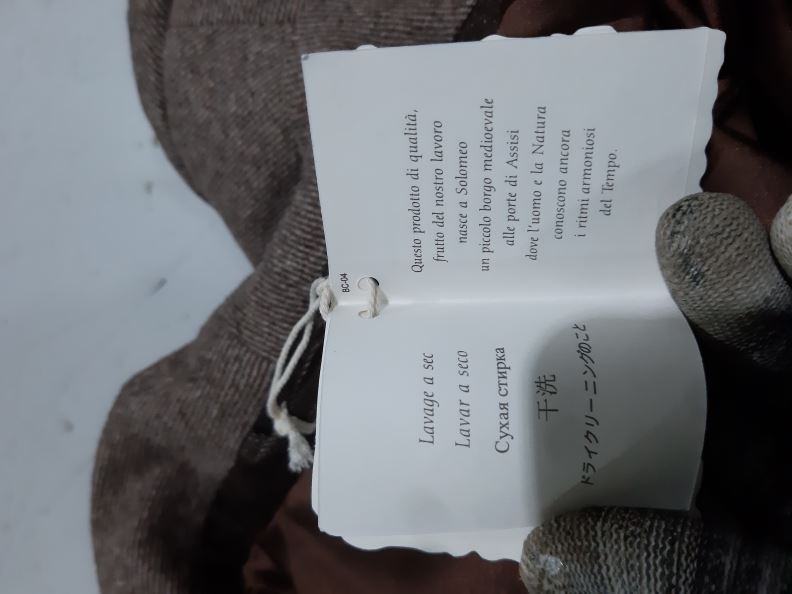 Lavage a sec
Lavar a seco
Сухая стирка
干洗
ドライクリーニングのこと
BC-04
Questo prodotto di qualità,
frutto del nostro lavoro
nasce a Solomeo
un piccolo borgo medioevale
alle porte di Assisi
dove l'uomo e la Natura
conoscono ancora
i ritmi armoniosi
del Tempo.